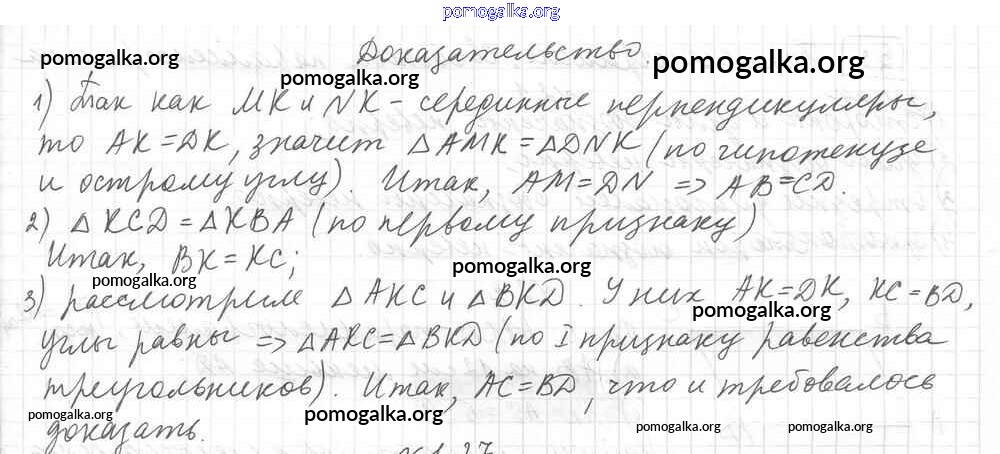 pomogalka.org
Доказательство.
pomogalka.org pomogalka.org
pomogalka.org
1) Так как MK и NK - серединные перпендикуляры,
то AK = DK, значит △AMK = △DNK (по гипотенузе
и острому углу). Итак, AM = DN => AB = CD.
2) △KCD = △KBA (по первому признаку)
Итак, BK = KC;
pomogalka.org
pomogalka.org
3) рассмотрим △AKC и △BKD. У них AK = DK, KC = BD,
pomogalka.org
углы равны => △AKC = △BKD (по I признаку равенства
треугольников). Итак, AC = BD, что и требовалось
pomogalka.org pomogalka.org pomogalka.org pomogalka.org
доказать.